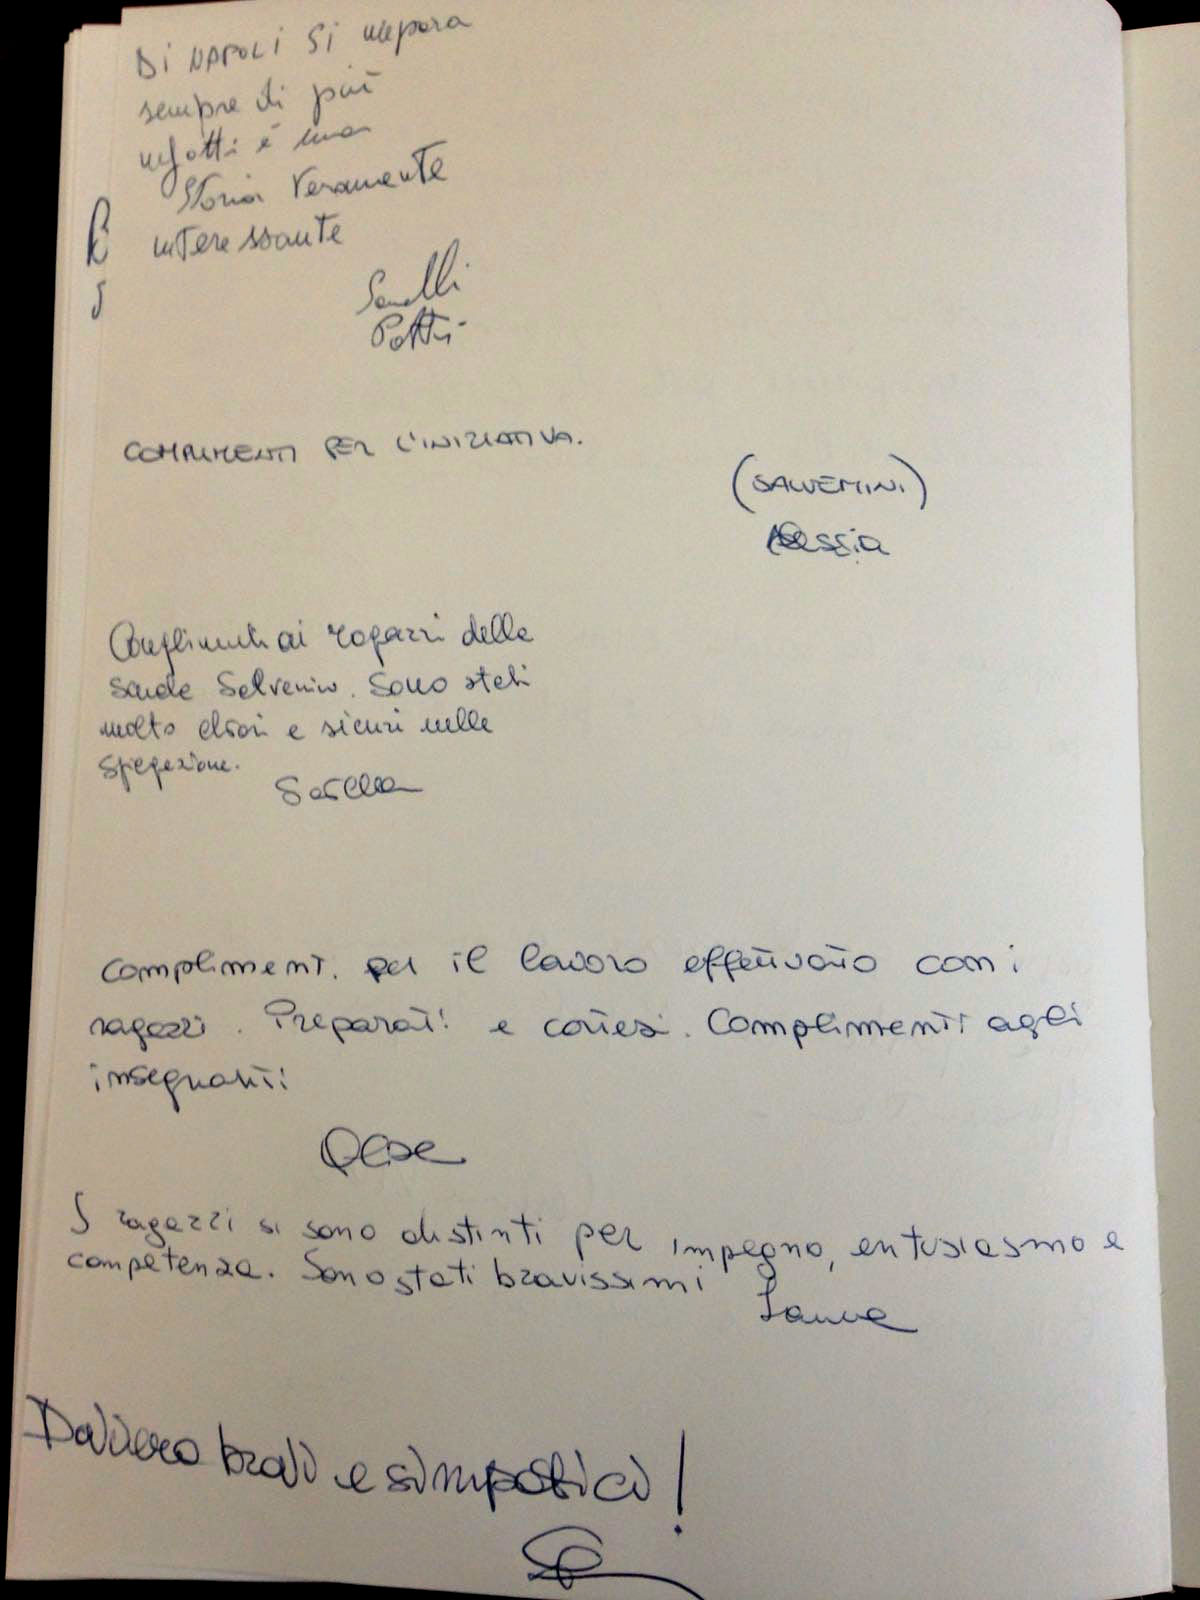 Di NAPOLI Si impara
sempre di più
infatti è una
Storia Veramente
interessante
COMPLIMENTI PER L'INIZIATIVA.
(SALVEMINI)
Alessia
Complimenti ai ragazzi della
scuola Salvemini. Sono stati
molto chiari e sicuri nella
spiegazione.
complimenti per il lavoro effettuato con i
ragazzi. Preparati e cortesi. Complimenti agli
insegnanti
I ragazzi si sono distinti per impegno, entusiasmo e
competenza. Sono stati bravissimi
Davvero bravi e simpatici!